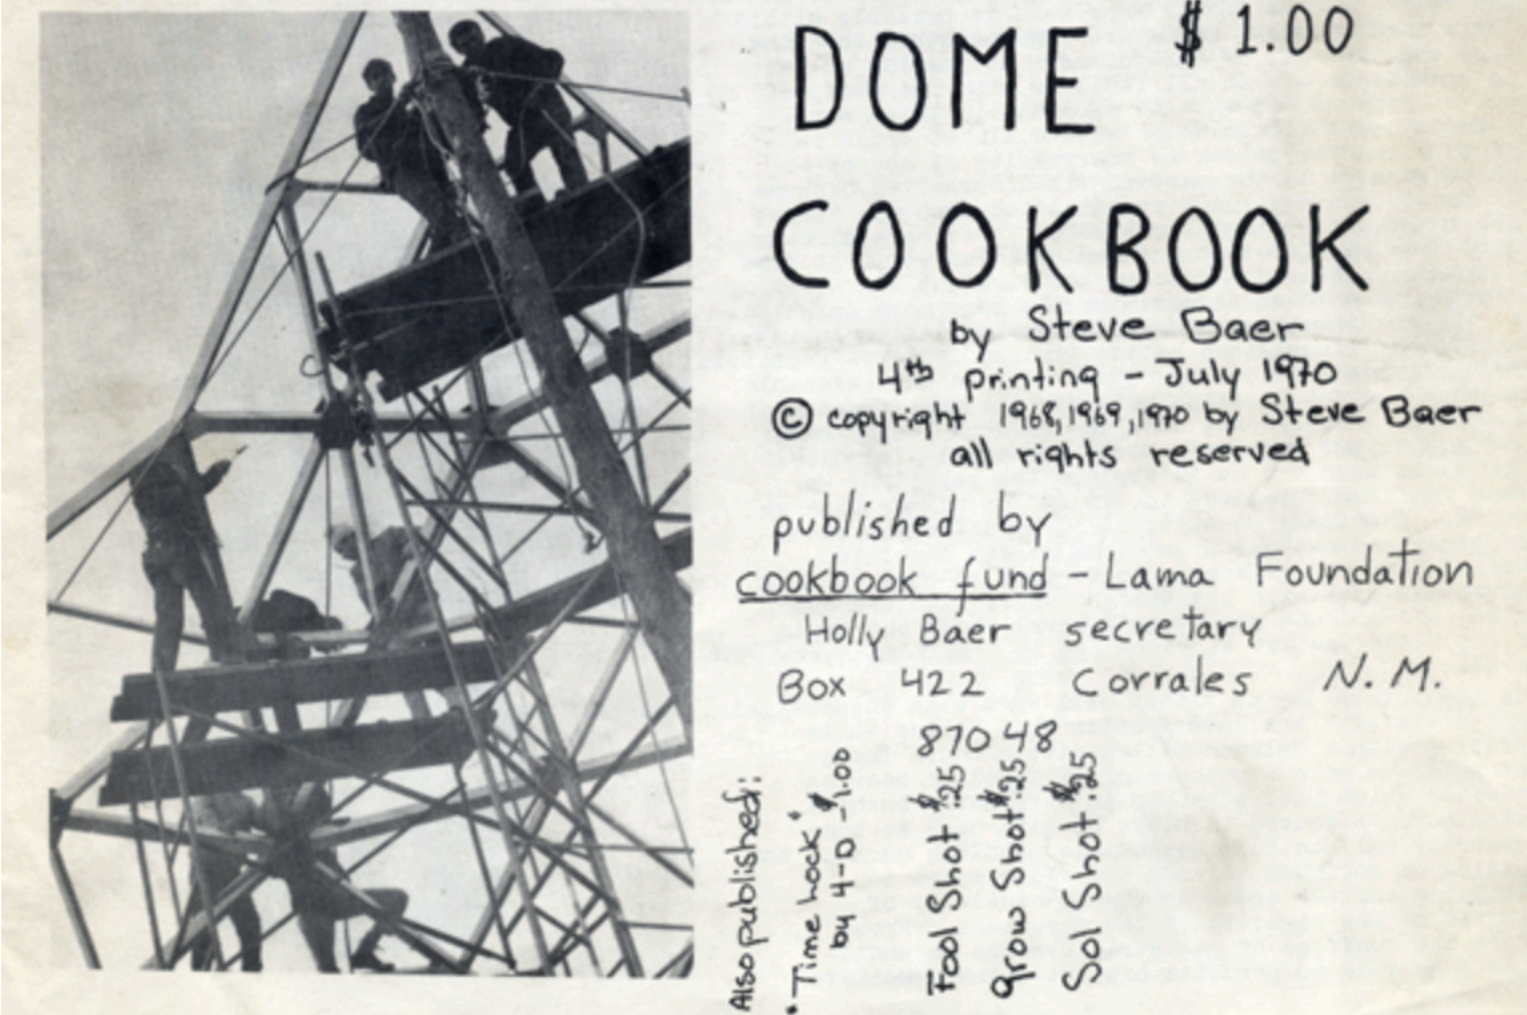 DOME $ 1.00
COOKBOOK
by Steve Baer
4th printing - July 1970
© copyright 1968, 1969, 1970 by Steve Baer
all rights reserved
published by
cookbook fund - Lama Foundation
Holly Baer secretary
Box 422 Corrales N.M.
87048
Also published:
"Time hock"
by 4-D - $1.00
Fool Shot $.25
Grow Shot $.25
Sol Shot $.25